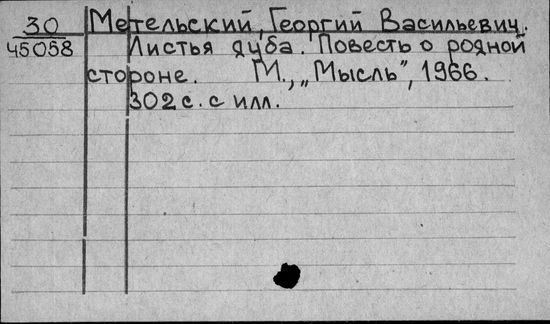 30 Метельский, Георгий Васильевич.
45058 Листья дуба. Повесть о родной
стороне. М., „Мысль", 1966.
302 с. с илл.